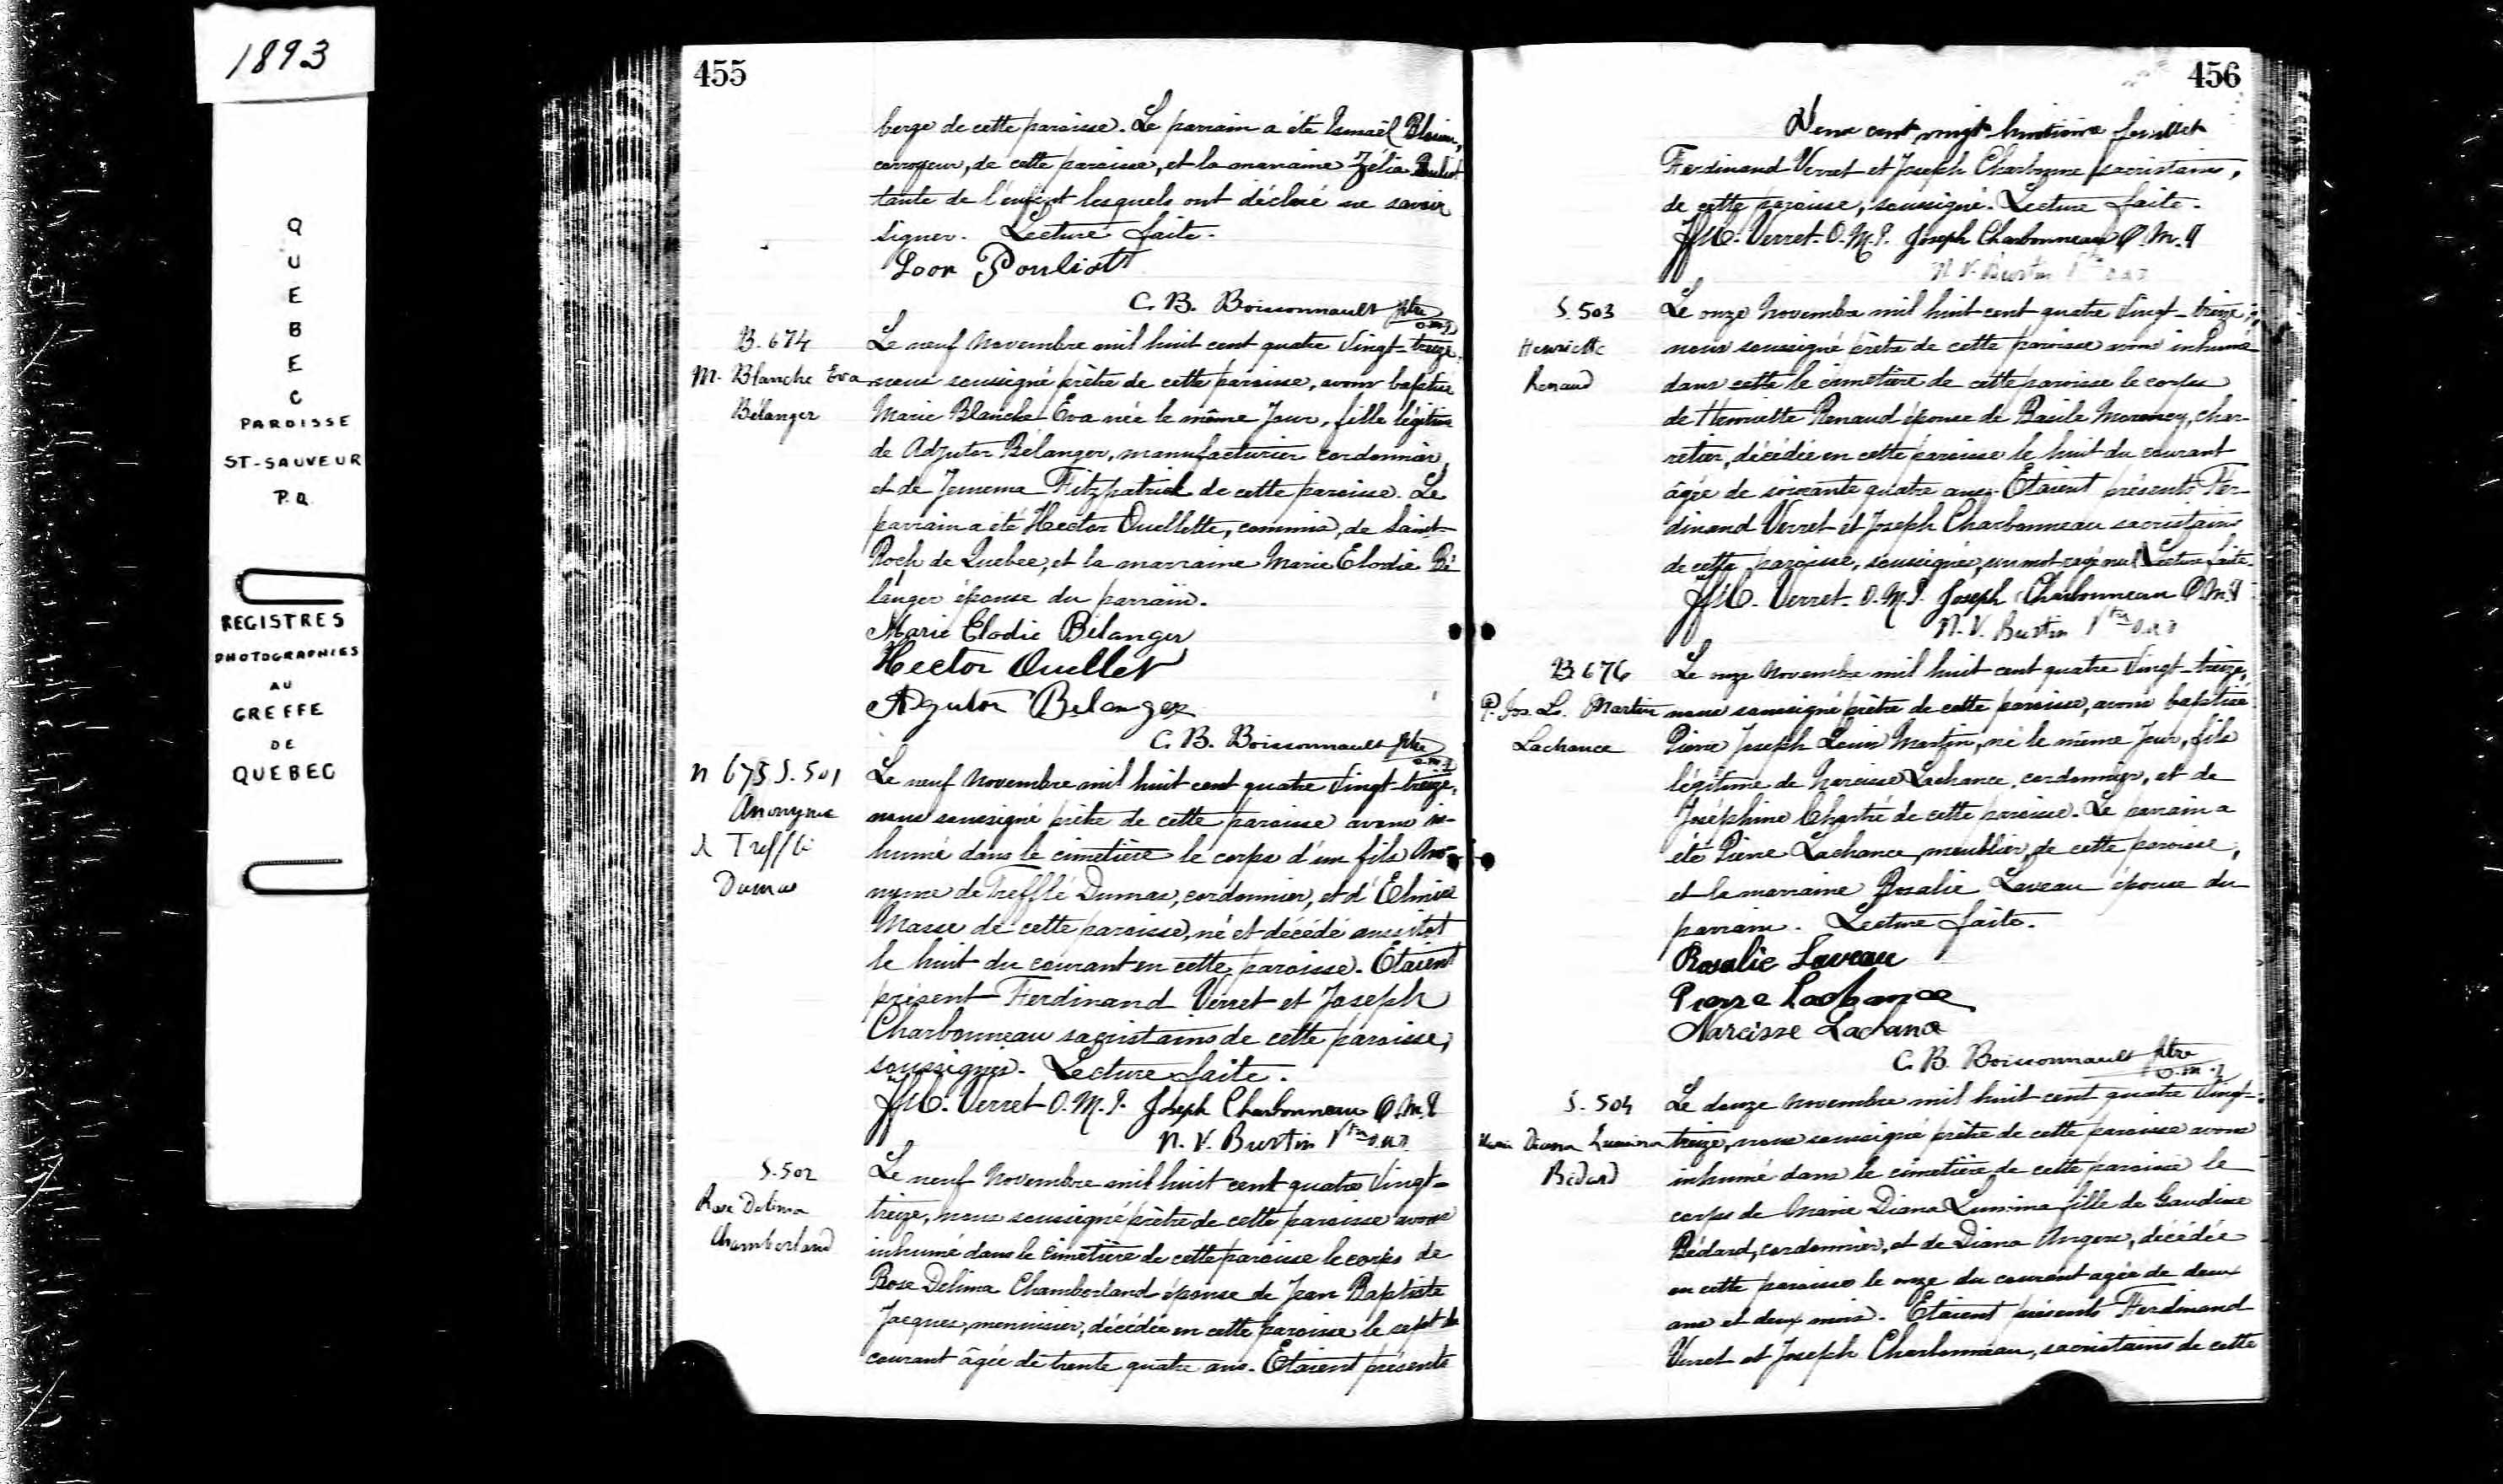 1893
QUEBEC
PAROISSE
ST-SAUVEUR
P.Q.
REGISTRES
PHOTOGRAPHIES
AU
GREFFE
DE
QUEBEC
455
berge de cette paroisse. Le parrain a été Ismaël
corroyeur, de cette paroisse, et la marraine Zélia Pouliot
tante de l'enfant lesquels ont déclaré ne savoir
signer. Lecture faite.
Leon Pouliot
C. B. Boissonnault ptre
o.m.i
B. 674
M. Blanche Eva
Bélanger
Le neuf Novembre mil huit cent quatre vingt-treize,
nous soussigné prêtre de cette paroisse, avons baptisé
Marie Blanche Eva née le même jour, fille légitime
de Adjutor Bélanger, manufacturier cordonnier,
et de Jemema Fitzpatrick de cette paroisse. Le
parrain a été Hector Ouellette, commis, de Saint-
Roch de Quebec, et la marraine Marie Elodie Bé
langer épouse du parrain.
Marie Elodie Bélanger
Hector Ouellet
Adjutor Belanger
C. B. Boissonnault ptre
o.m.i
n 675 S. 501
Anonyme
d Trefflé
Dumas
Le neuf Novembre mil huit cent quatre vingt-treize,
nous soussigné prêtre de cette paroisse avons in-
humé dans le cimetière le corps d'un fils Ano-
nyme de Trefflé Dumas, cordonnier, et d'Elmire
Masse de cette paroisse, né et décédé aussitot
le huit du courant en cette paroisse. Etaient
présent Ferdinand Verret et Joseph
Charbonneau sacristains de cette paroisse,
soussignés. Lecture faite.
Verret O.M.I. Joseph Charbonneau O.M.I
N. V. Burtin Ptre o.m.i.
S. 502
Rose Delima
Chamberland
Le neuf Novembre mil huit cent quatre vingt-
treize, nous soussigné prêtre de cette paroisse avons
inhumé dans le cimetière de cette paroisse le corps de
Rose Delima Chamberland épouse de Jean Baptiste
Jacques, menuisier, décédée en cette paroisse le sept du
courant âgée de trente quatre ans. Etaient présents
456
Deux cent vingt huitième feuillet
Ferdinand Verret et Joseph Charbonneau sacristains,
de cette paroisse, soussigné. Lecture faite.
Verret O.M.I. Joseph Charbonneau O.M.I
N. V. Burtin Ptre o.m.i
S. 503
Henriette
Renaud
Le onze Novembre mil huit cent quatre vingt-treize,
nous soussigné prêtre de cette paroisse avons inhumé
dans cette le cimetière de cette paroisse le corps
de Henriette Renaud épouse de Basile Morency, char-
retier, décédée en cette paroisse le huit du courant
âgée de soixante quatre ans. Etaient présents Fer-
dinand Verret et Joseph Charbonneau sacristains
de cette paroisse, soussignés, un mot rayé nul Lecture faite.
Verret O.M.I. Joseph Charbonneau O.M.I
N. V. Burtin Ptre o.m.i
B 676
P. Jos. L. Martin
Lachance
Le onze Novembre mil huit cent quatre vingt-treize,
nous soussigné prêtre de cette paroisse, avons baptisé
Pierre Joseph Louis Martin, né le même jour, fils
légitime de Narcisse Lachance, cordonnier, et de
Joséphine Chartré de cette paroisse. Le parrain a
été Pierre Lachance, meublier, de cette paroisse,
et la marraine Rosalie Laveau épouse du
parrain. Lecture faite.
Rosalie Laveau
Pierre Lachance
Narcisse Lachance
C. B. Boissonnault ptre
o.m.i
S. 504
Marie Diana Lumina
Bédard
Le douze Novembre mil huit cent quatre vingt-
treize, nous soussigné prêtre de cette paroisse avons
inhumé dans le cimetière de cette paroisse le
corps de Marie Diana Lumina fille de Gaudiose
Bédard, cordonnier, et de Diana Angers, décédée
en cette paroisse le onze du courant agée de deux
ans et deux mois. Etaient présents Ferdinand
Verret et Joseph Charbonneau, sacristains de cette